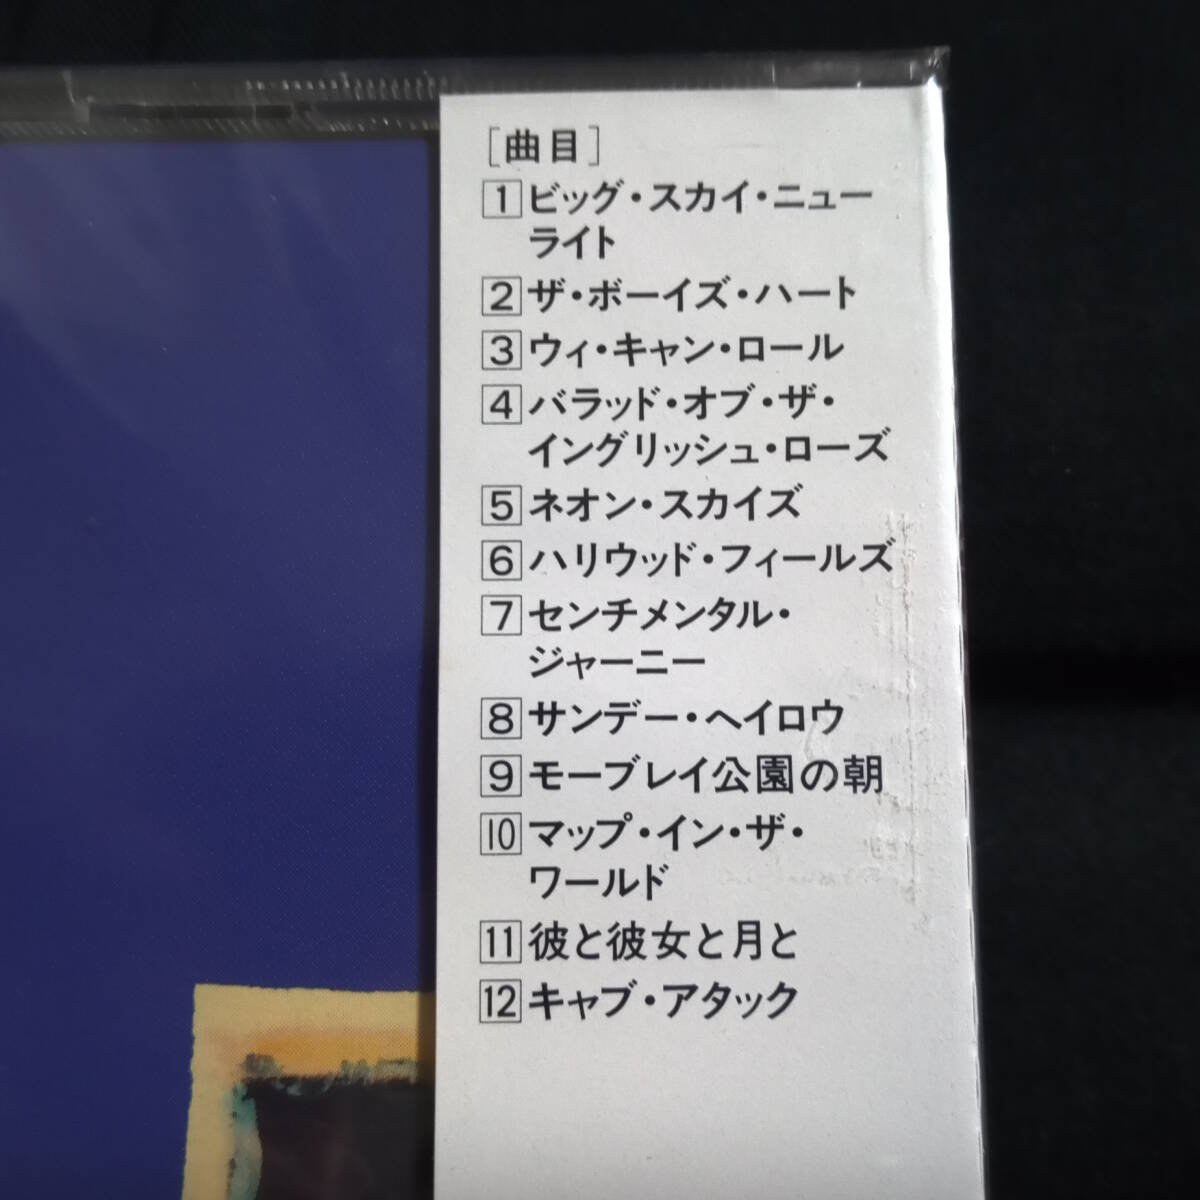 [曲目]
1 ビッグ・スカイ・ニュー
ライト
2 ザ・ボーイズ・ハート
3 ウィ・キャン・ロール
4 バラッド・オブ・ザ・
イングリッシュ・ローズ
5 ネオン・スカイズ
6 ハリウッド・フィールズ
7 センチメンタル・
ジャーニー
8 サンデー・ヘイロウ
9 モーブレイ公園の朝
10 マップ・イン・ザ・
ワールド
11 彼と彼女と月と
12 キャブ・アタック